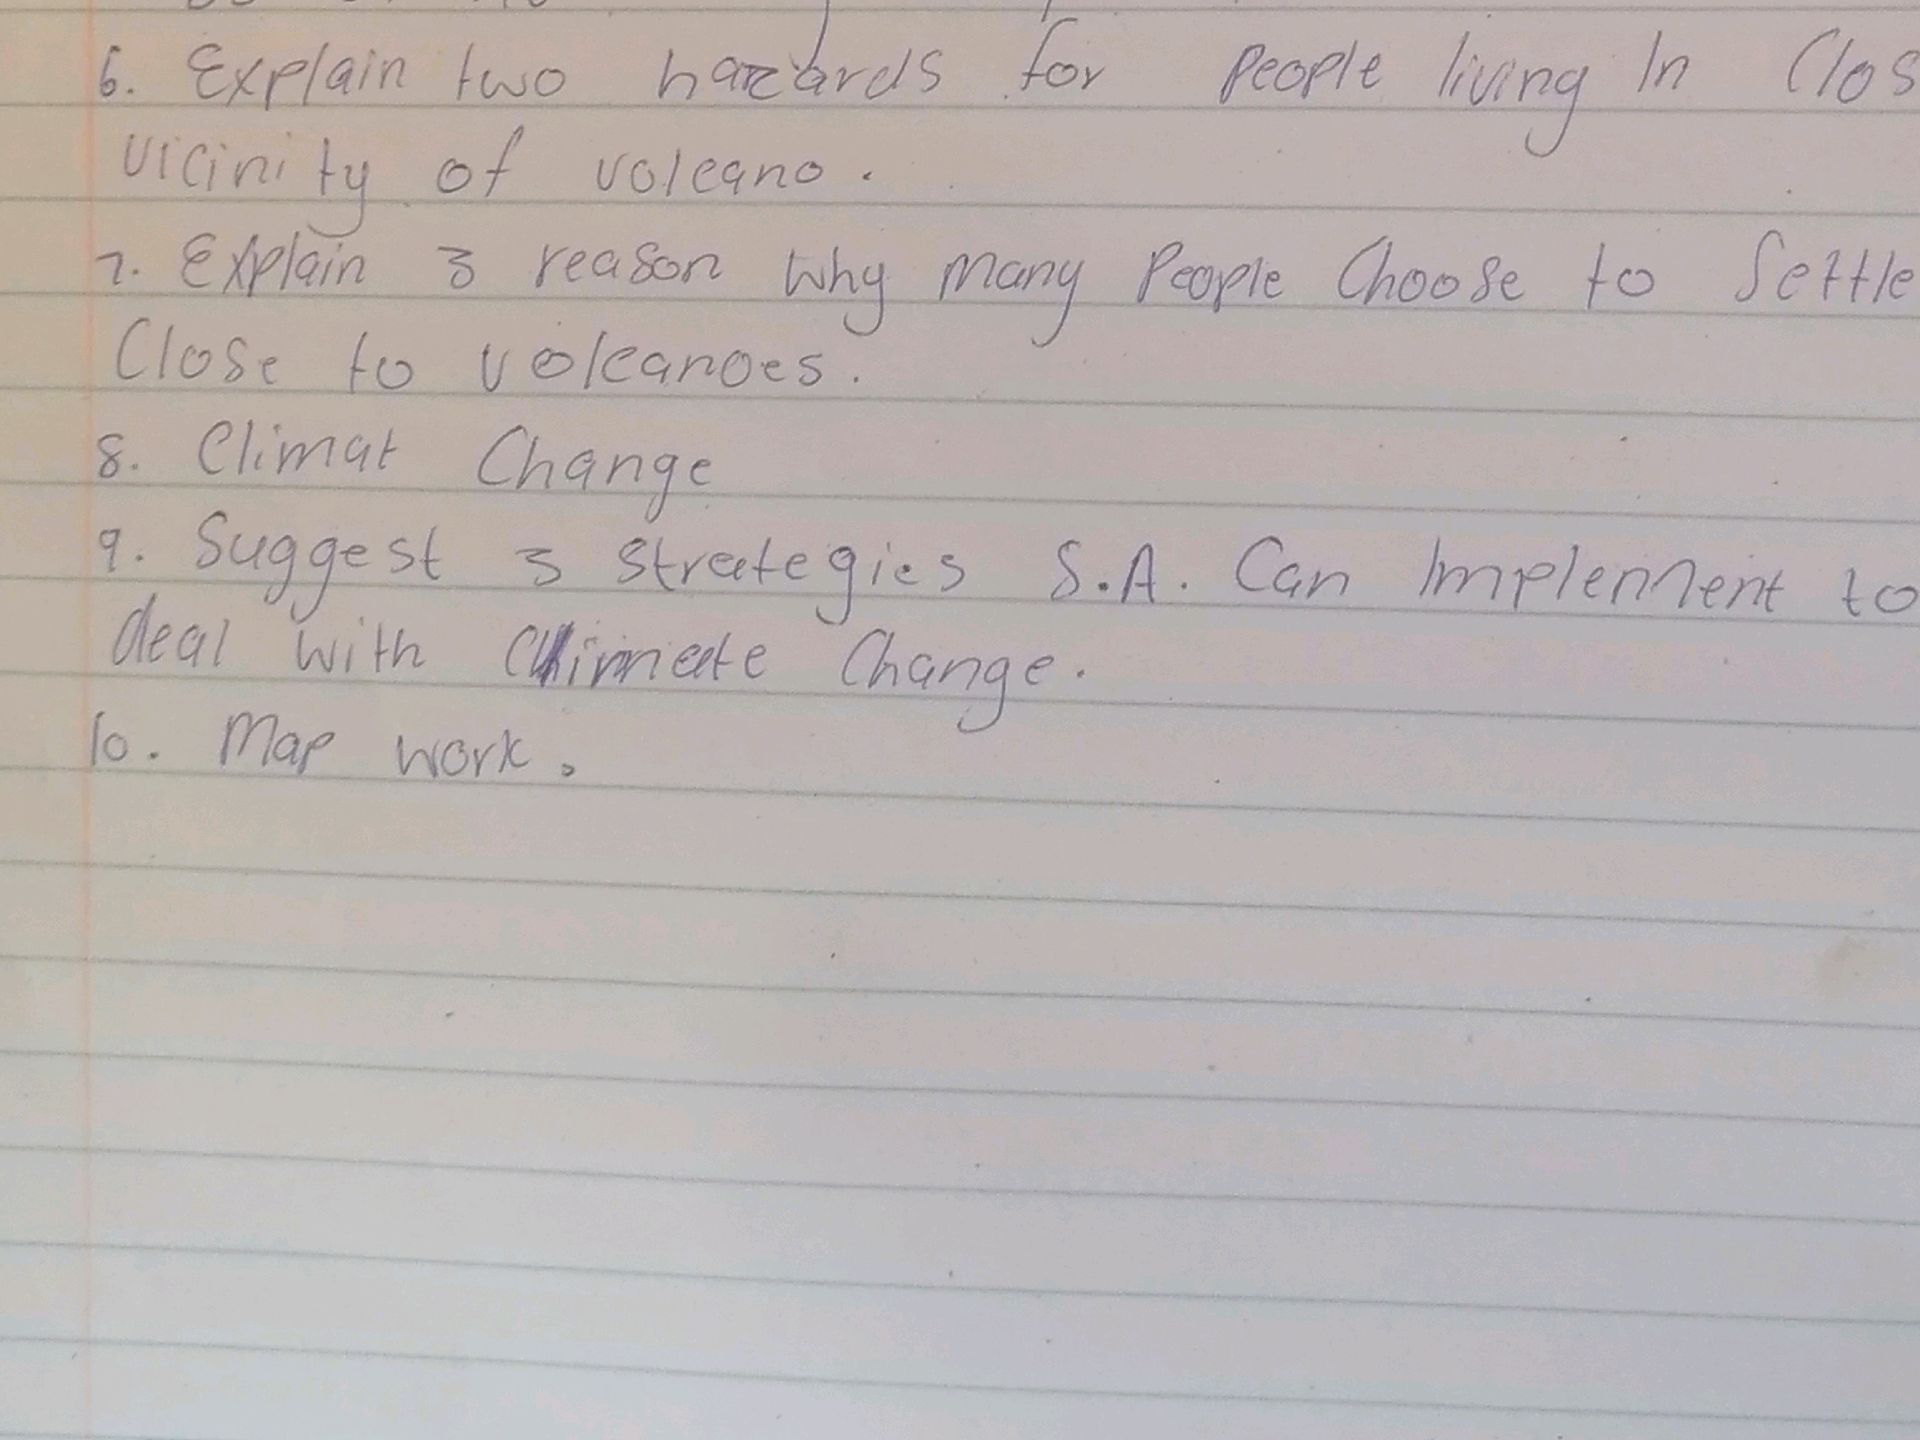 6. Explain two hazards for people living In Clos
vicinity of volcano.
7. Explain 3 reason why many People Choose to Settle
Close to volcanoes.
8. Climat Change
9. Suggest 3 Strategies S.A. Can Implement to
deal with Climate Change.
10. Map work.